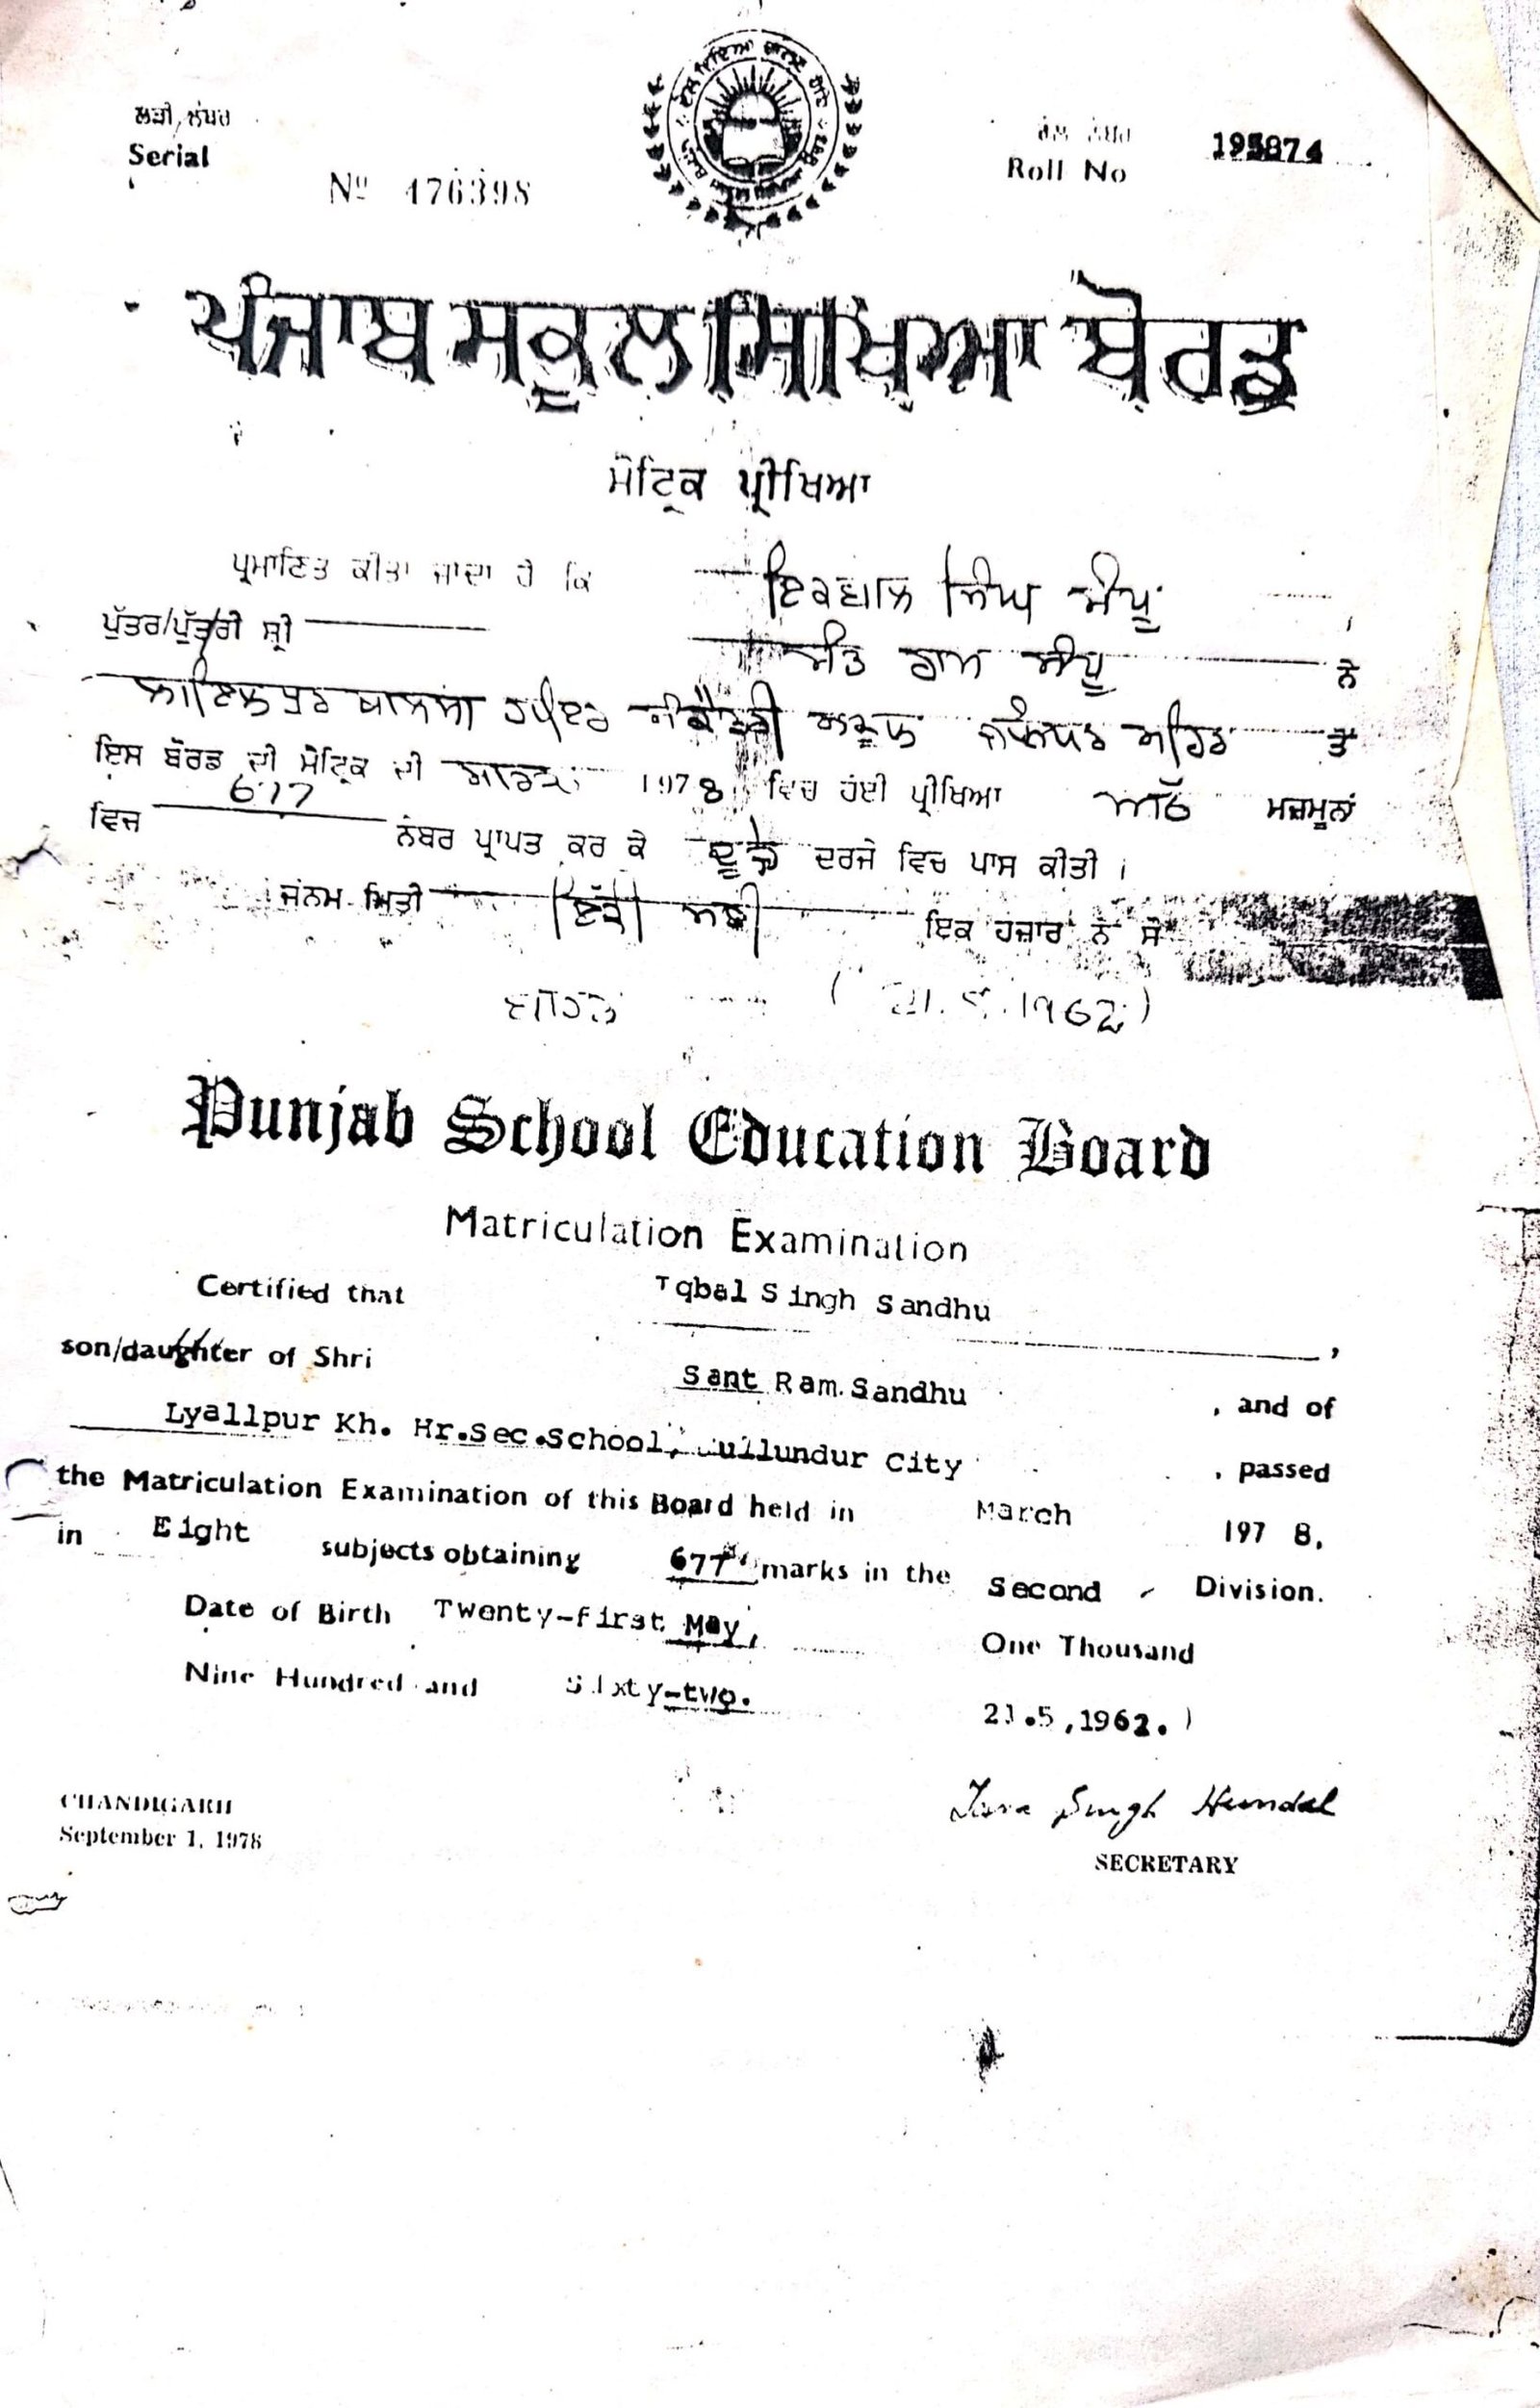 ਲੜੀ ਨੰਬਰ
Serial
Nº 476398
ਰੋਲ ਨੰਬਰ
Roll No 195874
ਪੰਜਾਬ ਸਕੂਲ ਸਿੱਖਿਆ ਬੋਰਡ
ਮੈਟ੍ਰਿਕ ਪ੍ਰੀਖਿਆ
ਪ੍ਰਮਾਣਿਤ ਕੀਤਾ ਜਾਂਦਾ ਹੈ ਕਿ ਇਕਬਾਲ ਸਿੰਘ ਸੰਧੂ ,
ਪੁੱਤਰ/ਪੁੱਤਰੀ ਸ਼੍ਰੀ ਸੰਤ ਰਾਮ ਸੰਧੂ ਨੇ
ਲਾਇਲਪੁਰ ਖਾਲਸਾ ਹਾਇਰ ਸੈਕੰਡਰੀ ਸਕੂਲ ਜਲੰਧਰ ਸ਼ਹਿਰ ਤੋਂ
ਇਸ ਬੋਰਡ ਦੀ ਮੈਟ੍ਰਿਕ ਦੀ ਮਾਰਚ 1978 ਵਿਚ ਹੋਈ ਪ੍ਰੀਖਿਆ ਅੱਠ ਮਜ਼ਮੂਨਾਂ
ਵਿਚ 677 ਨੰਬਰ ਪ੍ਰਾਪਤ ਕਰ ਕੇ ਦੂਜੇ ਦਰਜੇ ਵਿਚ ਪਾਸ ਕੀਤੀ ।
ਜਨਮ ਮਿਤੀ ਇੱਕੀ ਮਈ ਇਕ ਹਜ਼ਾਰ ਨੌ ਸੌ
ਬਾਹਠ ( 21.5.1962 )
Punjab School Education Board
Matriculation Examination
Certified that Iqbal Singh Sandhu ,
son/daughter of Shri Sant Ram Sandhu , and of
Lyallpur Kh. Hr.Sec.School, Jullundur City , passed
the Matriculation Examination of this Board held in March 197 8.
in Eight subjects obtaining 677 marks in the Second Division.
Date of Birth Twenty-first May, One Thousand
Nine Hundred and Sixty-two. 21.5,1962. )
CHANDIGARH
September 1, 1978
Tara Singh Hundal
SECRETARY